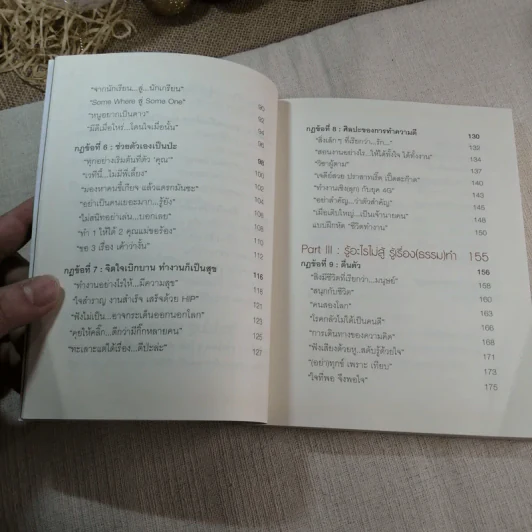 "จากนักเรียน...สู่...นักเกรียน"
"Some Where สู่ Some One" 90
"หนูอยากเป็นดาว" 92
"มีดีเมื่อไหร่...โดนใจเมื่อนั้น" 94
กฎข้อที่ 6 : ช่วยตัวเองเป็นปะ 96
"ทุกอย่างเริ่มต้นที่ตัว 'คุณ'" 98
"เวทีนี้...ไม่มีพี่เลี้ยง" 100
"มองหาคนขี้เกียจ แล้วแคร่งทมันซะ"
"อย่าเป็นคนเยอะมาก...รู้ยัง" 104
"ไม่สนิทอย่าเล่น...บอกเลย" 106
"ทำ 1 ให้ได้ 2 คุณแม่ขอร้อง" 108
"ขอ 3 เรื่อง เค้าว่างั้น" 110
กฎข้อที่ 7 : จิตใจเบิกบาน ทำงานก็เป็นสุข 116
"ทำงานอย่างไรให้...มีความสุข" 116
"ใจสำราญ งานสำเร็จ เสร็จด้วย HIP" 119
"ฟังไม่เป็น...อาจกระเด็นออกนอกโลก" 121
"คุยให้คลิ๊ก...ดีกว่ามีกิ๊กหลายคน" 123
"ทะเลาะแต่ได้เรื่อง...ดีปะล่ะ" 125
127
กฎข้อที่ 8 : ศิลปะของการทำความดี 130
"สิ่งเล็กๆ ที่เรียกว่า...รัก..." 132
"สอนงานอย่างไร...ให้ได้ทั้งใจ ได้ทั้งงาน" 134
"วิชาผู้ตาม" 137
"เจดีย์สวย ปราสาทเลิศ เป็ดสะก๊าด" 140
"ทำงานเชิงลุกๆ กับยุค 4G" 143
"อย่าสำคัญ...ว่าตัวสำคัญ" 145
"เมื่อเติบใหญ่...เป็นเจ้านายคน" 148
แบบฝึกหัด "ชีวิตทำงาน" 150
Part III : รู้อะไรไม่สู้ รู้เรื่อง(ธรรม)ทำ 155
กฎข้อที่ 9 : ตื่นตัว 156
"สิ่งมีชีวิตที่เรียกว่า...มนุษย์" 158
"สนุกกับชีวิต" 160
"คนสองโลก" 163
"โรคกลัวไม่ได้เป็นคนดี" 166
"การเดินทางของความคิด" 168
"ฟังเสียงด้วยหู...สดับรู้ด้วยใจ" 171
"(อย่า)ทุกข์ เพราะ เทียบ" 173
"ใจที่พอ จึงพอใจ" 175